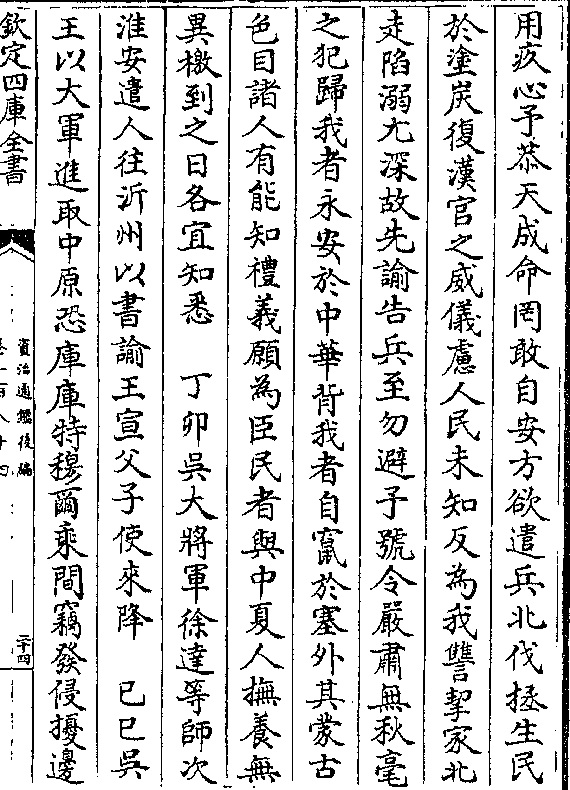 用疚心予恭天成命罔敢自安方欲遣兵北伐拯生民
於塗炭復漢官之威儀慮人民未知反為我讐挈家北
走陷溺尤深故先諭告兵至勿避予號令嚴肅無秋毫
之犯歸我者永安於中華背我者自竄於塞外其蒙古
色目諸人有能知禮義願為臣民者與中夏人撫養無
異檄到之日各宜知悉　丁卯吳大將軍徐達等師次
淮安遣人往沂州以書諭王宣父子使來降　己巳吳
王以大軍進取中原恐庫庫特穆爾乘間竊發侵擾邊
欽定四庫全書
資治通鑑後編
卷一百八十四
二十四